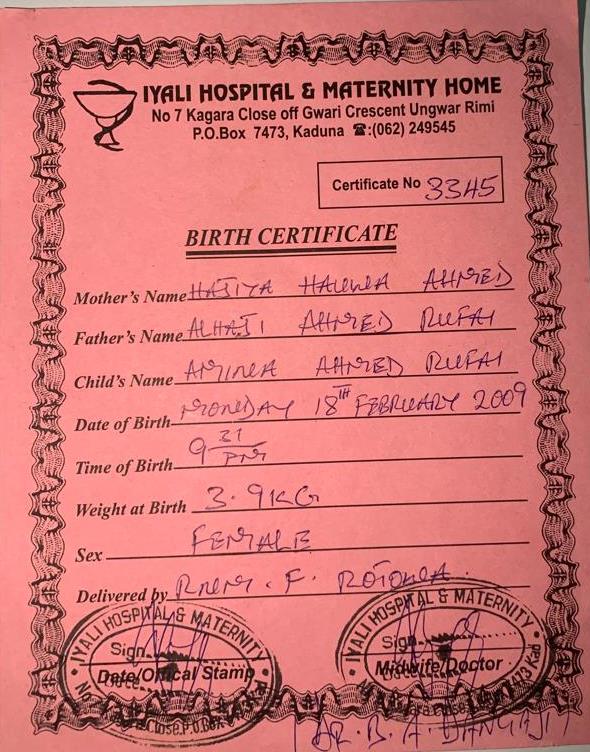 IYALI HOSPITAL & MATERNITY HOME
No 7 Kagara Close off Gwari Crescent Ungwar Rimi
P.O.Box 7473, Kaduna ☎:(062) 249545
Certificate No 3345
BIRTH CERTIFICATE
Mother's Name HAJIYA HAUWA AHMED
Father's Name ALHAJI AHMED RUFAI
Child's Name AMINA AHMED RUFAI
Date of Birth MONDAY 18TH FEBRUARY 2009
Time of Birth 9 31 PM
Weight at Birth 3.9KG
Sex FEMALE
Delivered by F. ROTOWA.
IYALI HOSPITAL & MATERNITY
Sign
Date/Offical Stamp
Close.P.O.Box
IYALI HOSPITAL & MATERNITY
Sign
Midwife/Doctor
7473 Kad
DR. B. A.